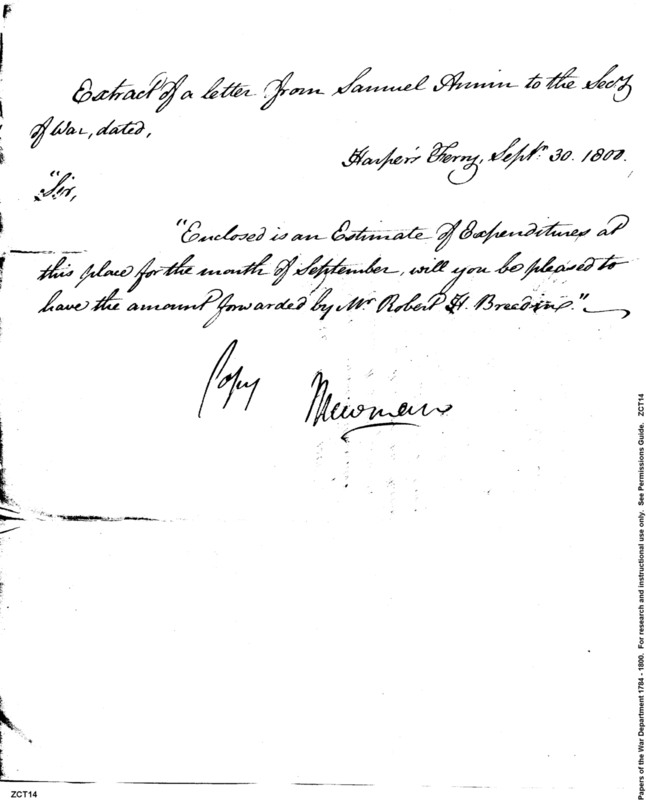 Extract of a letter from Samuel Annin to the Secy
of War, dated,
Harper's Ferry, Septr. 30. 1800.
"Sir,
"Enclosed is an Estimate of Expenditures at
this place for the month of September, will you be pleased to
have the amount forwarded by Mr Robert H.
Copy Newman
ZCT14
Papers of the War Department 1784 - 1800. For research and instructional use only. See Permissions Guide. ZCT14